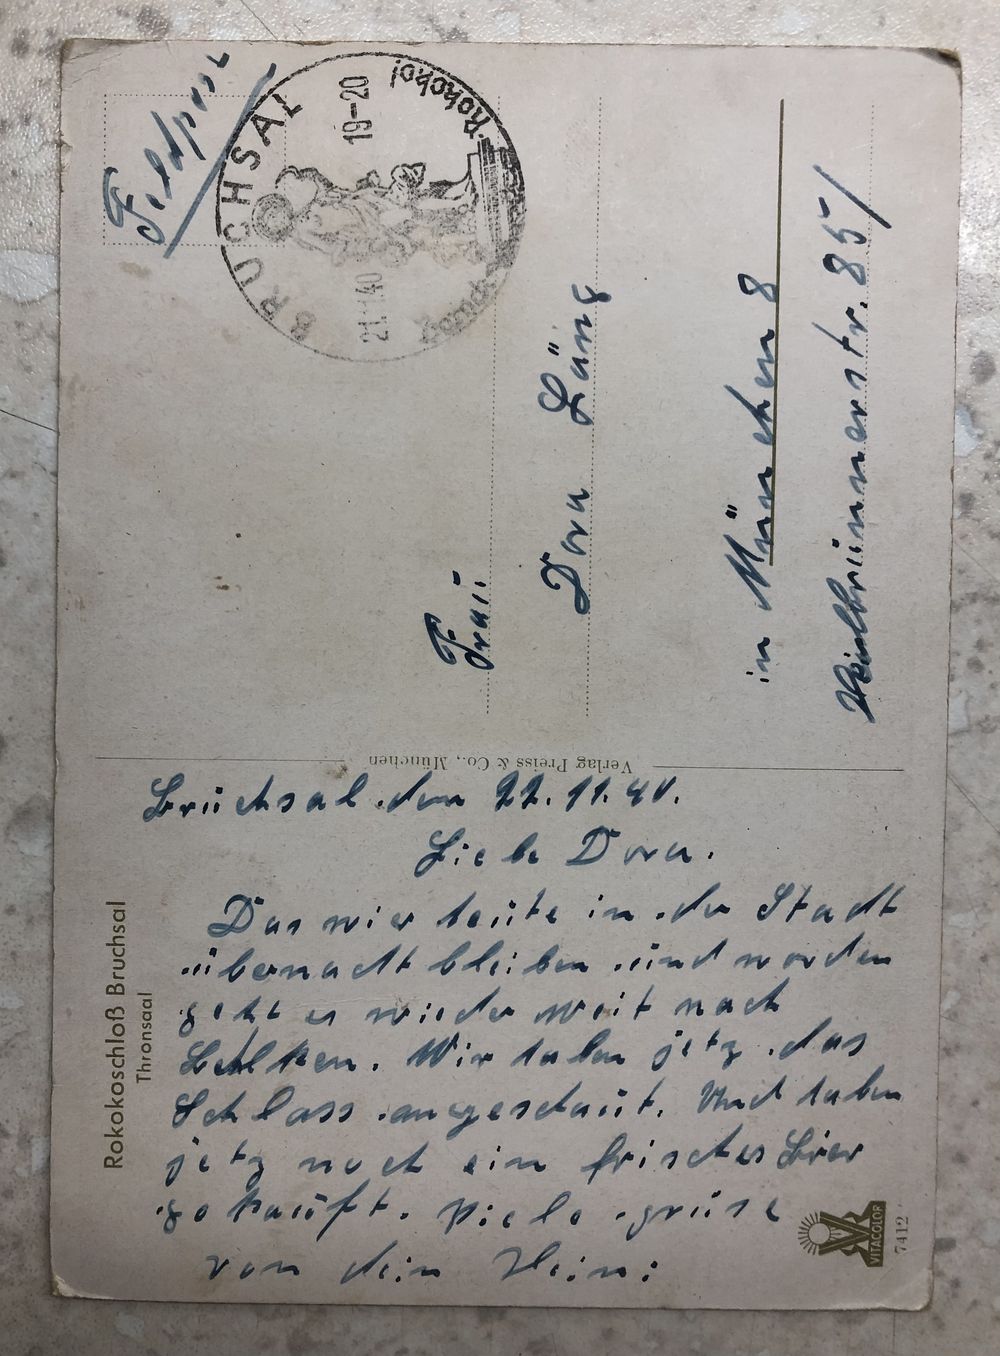 Rokokoschloß Bruchsal
Thronsaal
Bruchsal den 22.11.40.
Liebe Dora.
Das wier heute in der Stadt
übernacht bleiben und morden
geht es wieder weit nach
Wir haben jetz das
Schloss angeschaut. Und haben
jetz noch ein frisches Bier
gekauft. Viele grüse
von dein Heini
VITACOLOR
7412
Verlag Preiss & Co., München
Feldpost
BRUCHSAL
19-20
21.11.40
Barock
Rokoko!
Frau
Dora Läng
in München 8
str. 85/